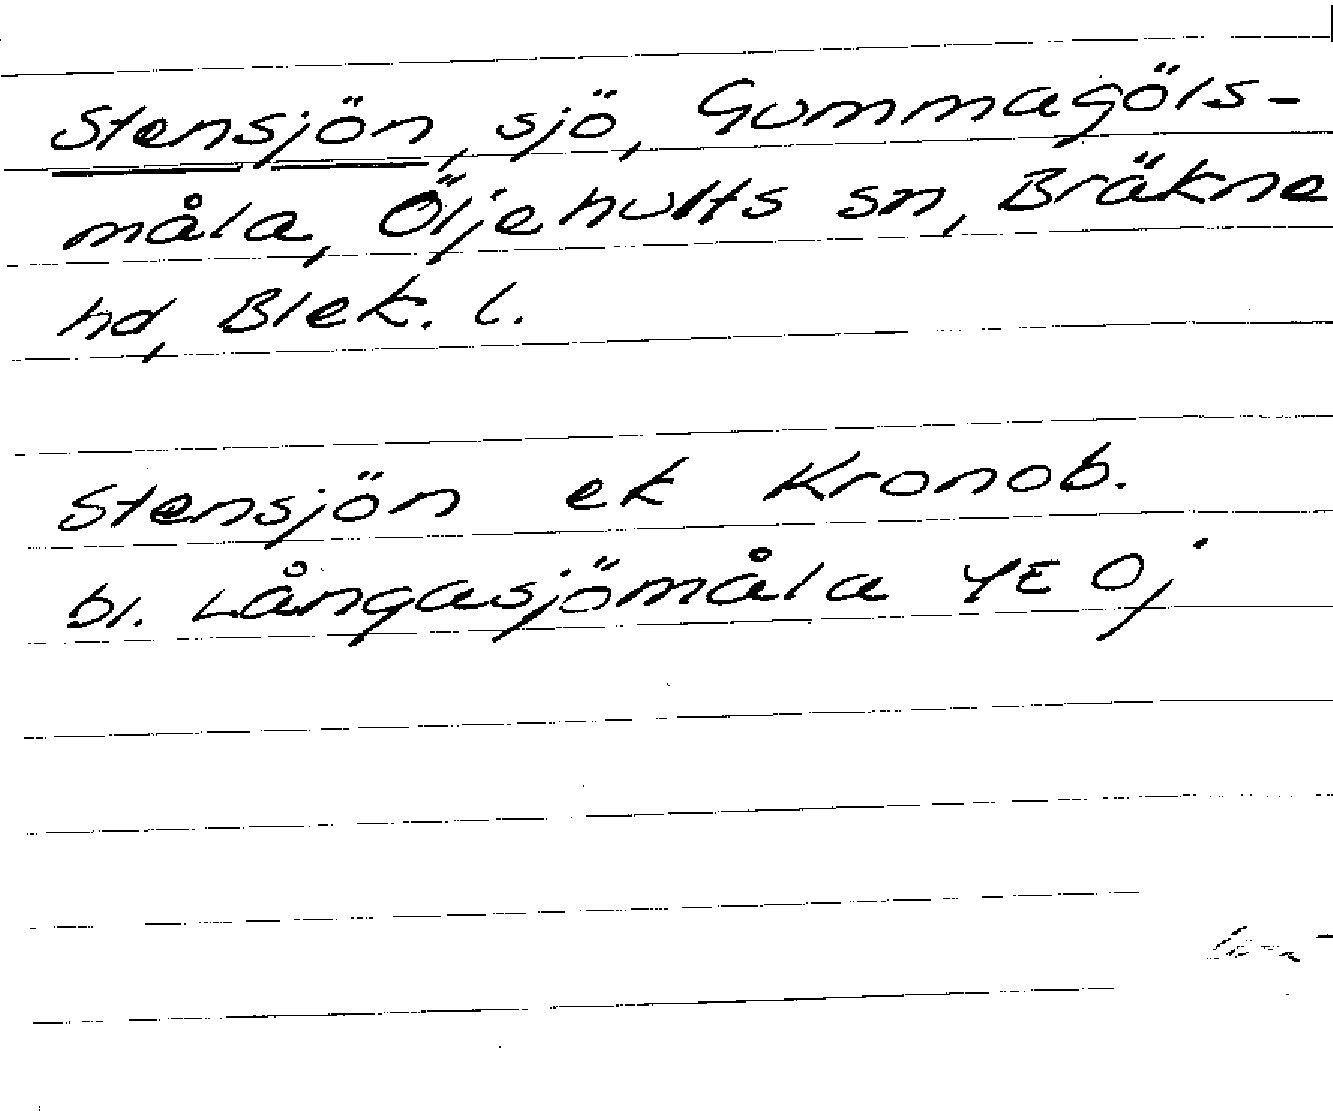 Stensjön, sjö, Gummagöls-
måla, Öljehults sn, Bräkne
hd, Blek. l.
Stensjön ek Kronob.
bl. Långasjömåla YE Oj